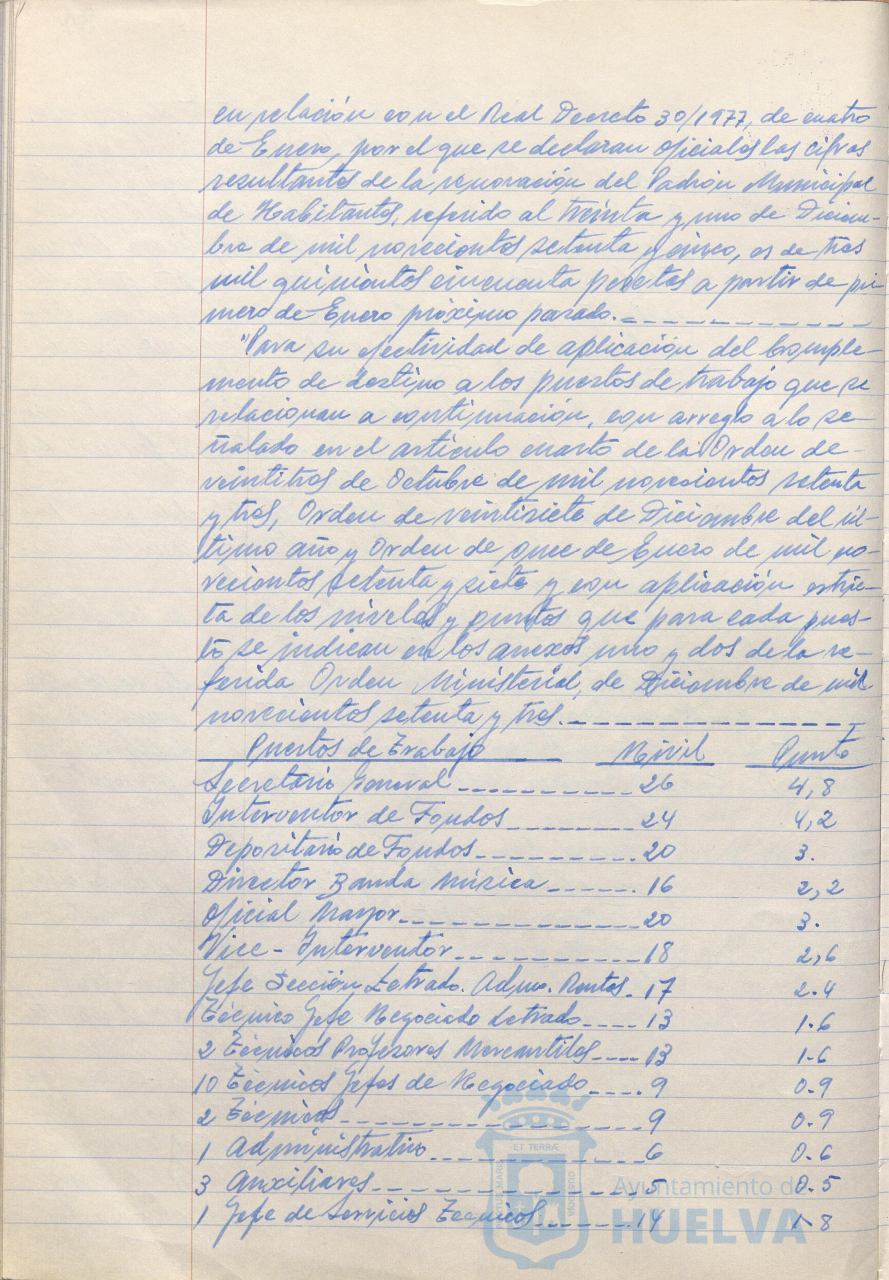 en relación con el Real Decreto 30/1977, de cuatro
de Enero, por el que se declaran oficiales las cifras
resultantes de la renovación del Padrón Municipal
de Habitantes, referido al treinta y uno de Diciem-
bre de mil novecientos setenta y cinco, es de tres
mil quinientos cincuenta pesetas a partir de pri
mero de Enero próximo pasado.
"Para su efectividad de aplicación del Comple-
mento de destino a los puestos de trabajo que se
relacionan a continuación, con arreglo a lo se-
ñalado en el artículo cuarto de la Orden de
veintitres de Octubre de mil novecientos setenta
y tres, Orden de veintisiete de Diciembre del úl-
timo año y Orden de once de Enero de mil no-
vecientos setenta y siete y con aplicación estric-
ta de los niveles y puntos que para cada pues-
to se indican en los anexos uno y dos de la re-
ferida Orden Ministerial, de Diciembre de mil
novecientos setenta y tres.
Puestos de Trabajo Nivel Punto
Secretario General 26 4,8
Interventor de Fondos 24 4,2
Depositario de Fondos 20 3.
Director Banda Música 16 2,2
Oficial Mayor 20 3.
Vice-Interventor 18 2,6
Jefe Sección Letrado. Admo. Rentas 17 2.4
Técnico Jefe Negociado Letrado 13 1.6
2 Técnicos Profesores Mercantiles 13 1.6
10 Técnicos Jefes de Negociado 9 0.9
2 Técnicos 9 0.9
1 Administrativo 6 0.6
3 Auxiliares 5 0.5
1 Jefe de Servicios Técnicos 14 1-8
ET TERRÆ
Ayuntamiento de
HUELVA